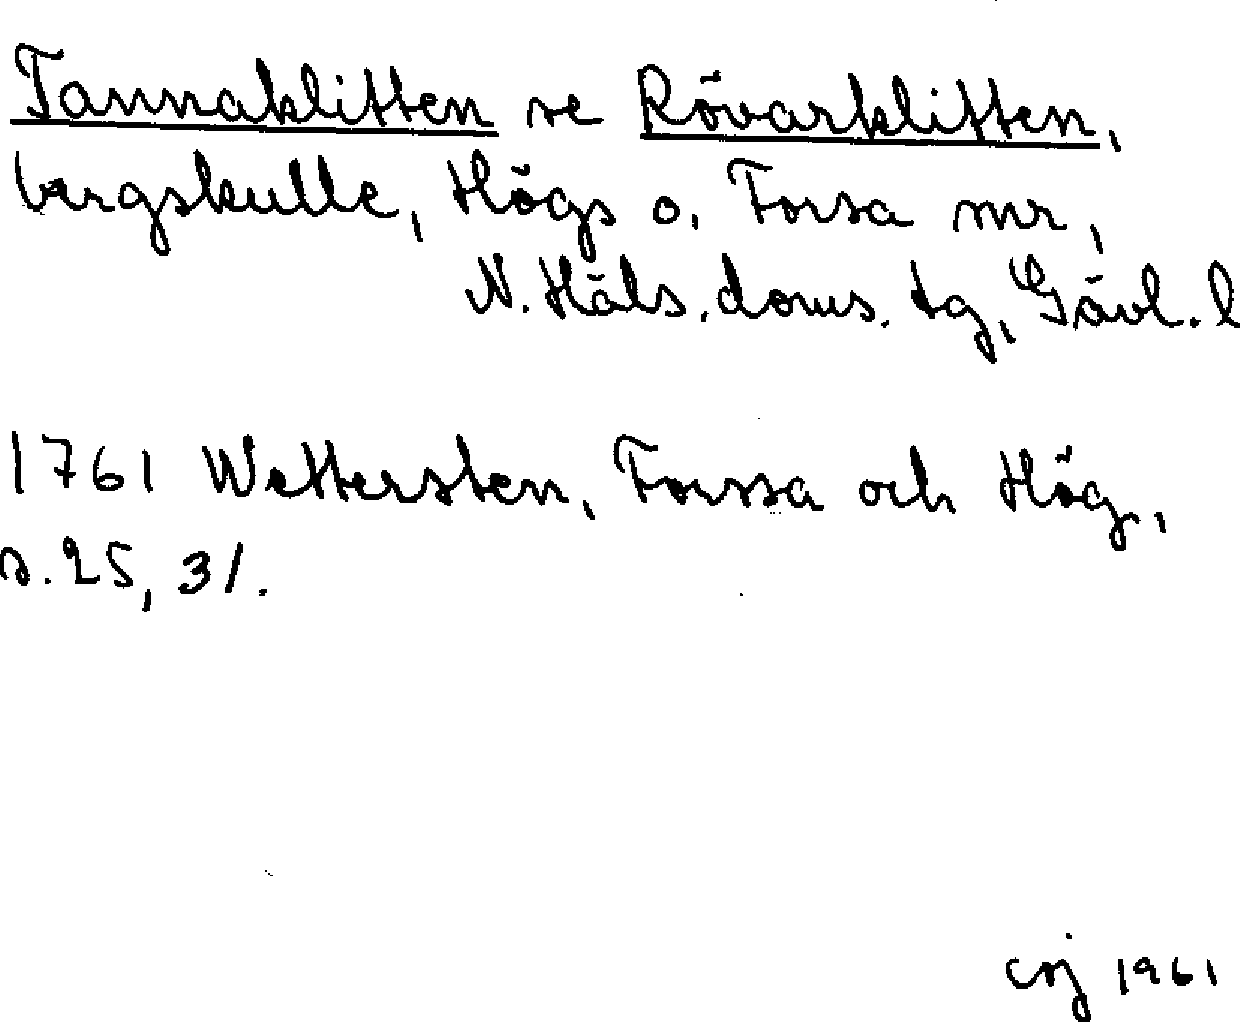 Tannaklitten se Rövarklitten,
bergskulle, Högs o. Forsa snr,
N. Häls. doms. tg, Gävl. l
1761 Wettersten, Forssa och Hög,
s. 25, 31.
coj 1961